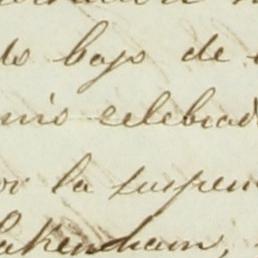 do bajo de
nio celebrad
or la suspen
Pakenham,